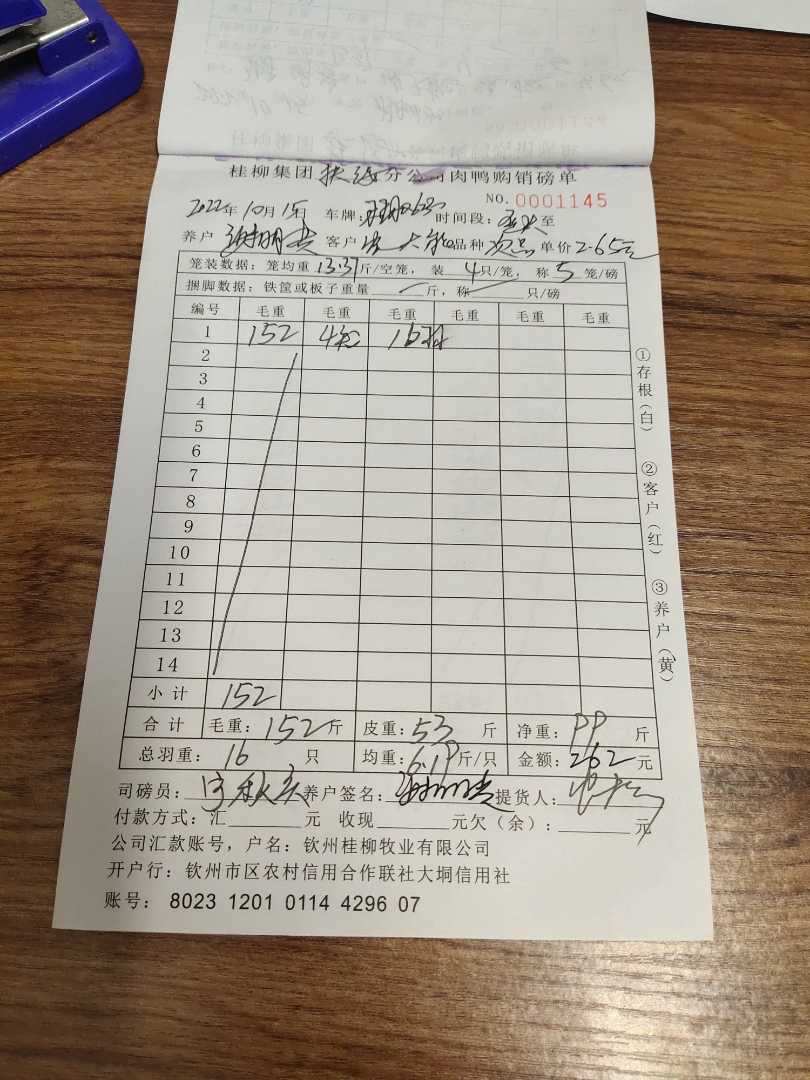 桂柳集团 分公司肉鸭购销磅单
NO. 0001145
2022年10月15日 车牌: 时间段: 至
养户 谢明贵 客户 大 品种 次品 单价 2.65元
笼装数据: 笼均重 13.37 斤/空笼, 装 4 只/笼, 称 5 笼/磅
捆脚数据: 铁筐或板子重量 斤, 称 只/磅
编号 毛重 毛重 毛重 毛重 毛重 毛重
1 152 4 16
2
3
4
5
6
7
8
9
10
11
12
13
14
小计 152
合计 毛重: 152 斤 皮重: 53 斤 净重: 99 斤
总羽重: 16 只 均重: 6.19 斤/只 金额: 262 元
司磅员: 养户签名: 谢明贵 提货人:
付款方式: 汇 元 收现 元欠(余): 元
公司汇款账号, 户名: 钦州桂柳牧业有限公司
开户行: 钦州市区农村信用合作联社大垌信用社
账号: 8023 1201 0114 4296 07
①存根(白)
②客户(红)
③养户(黄)